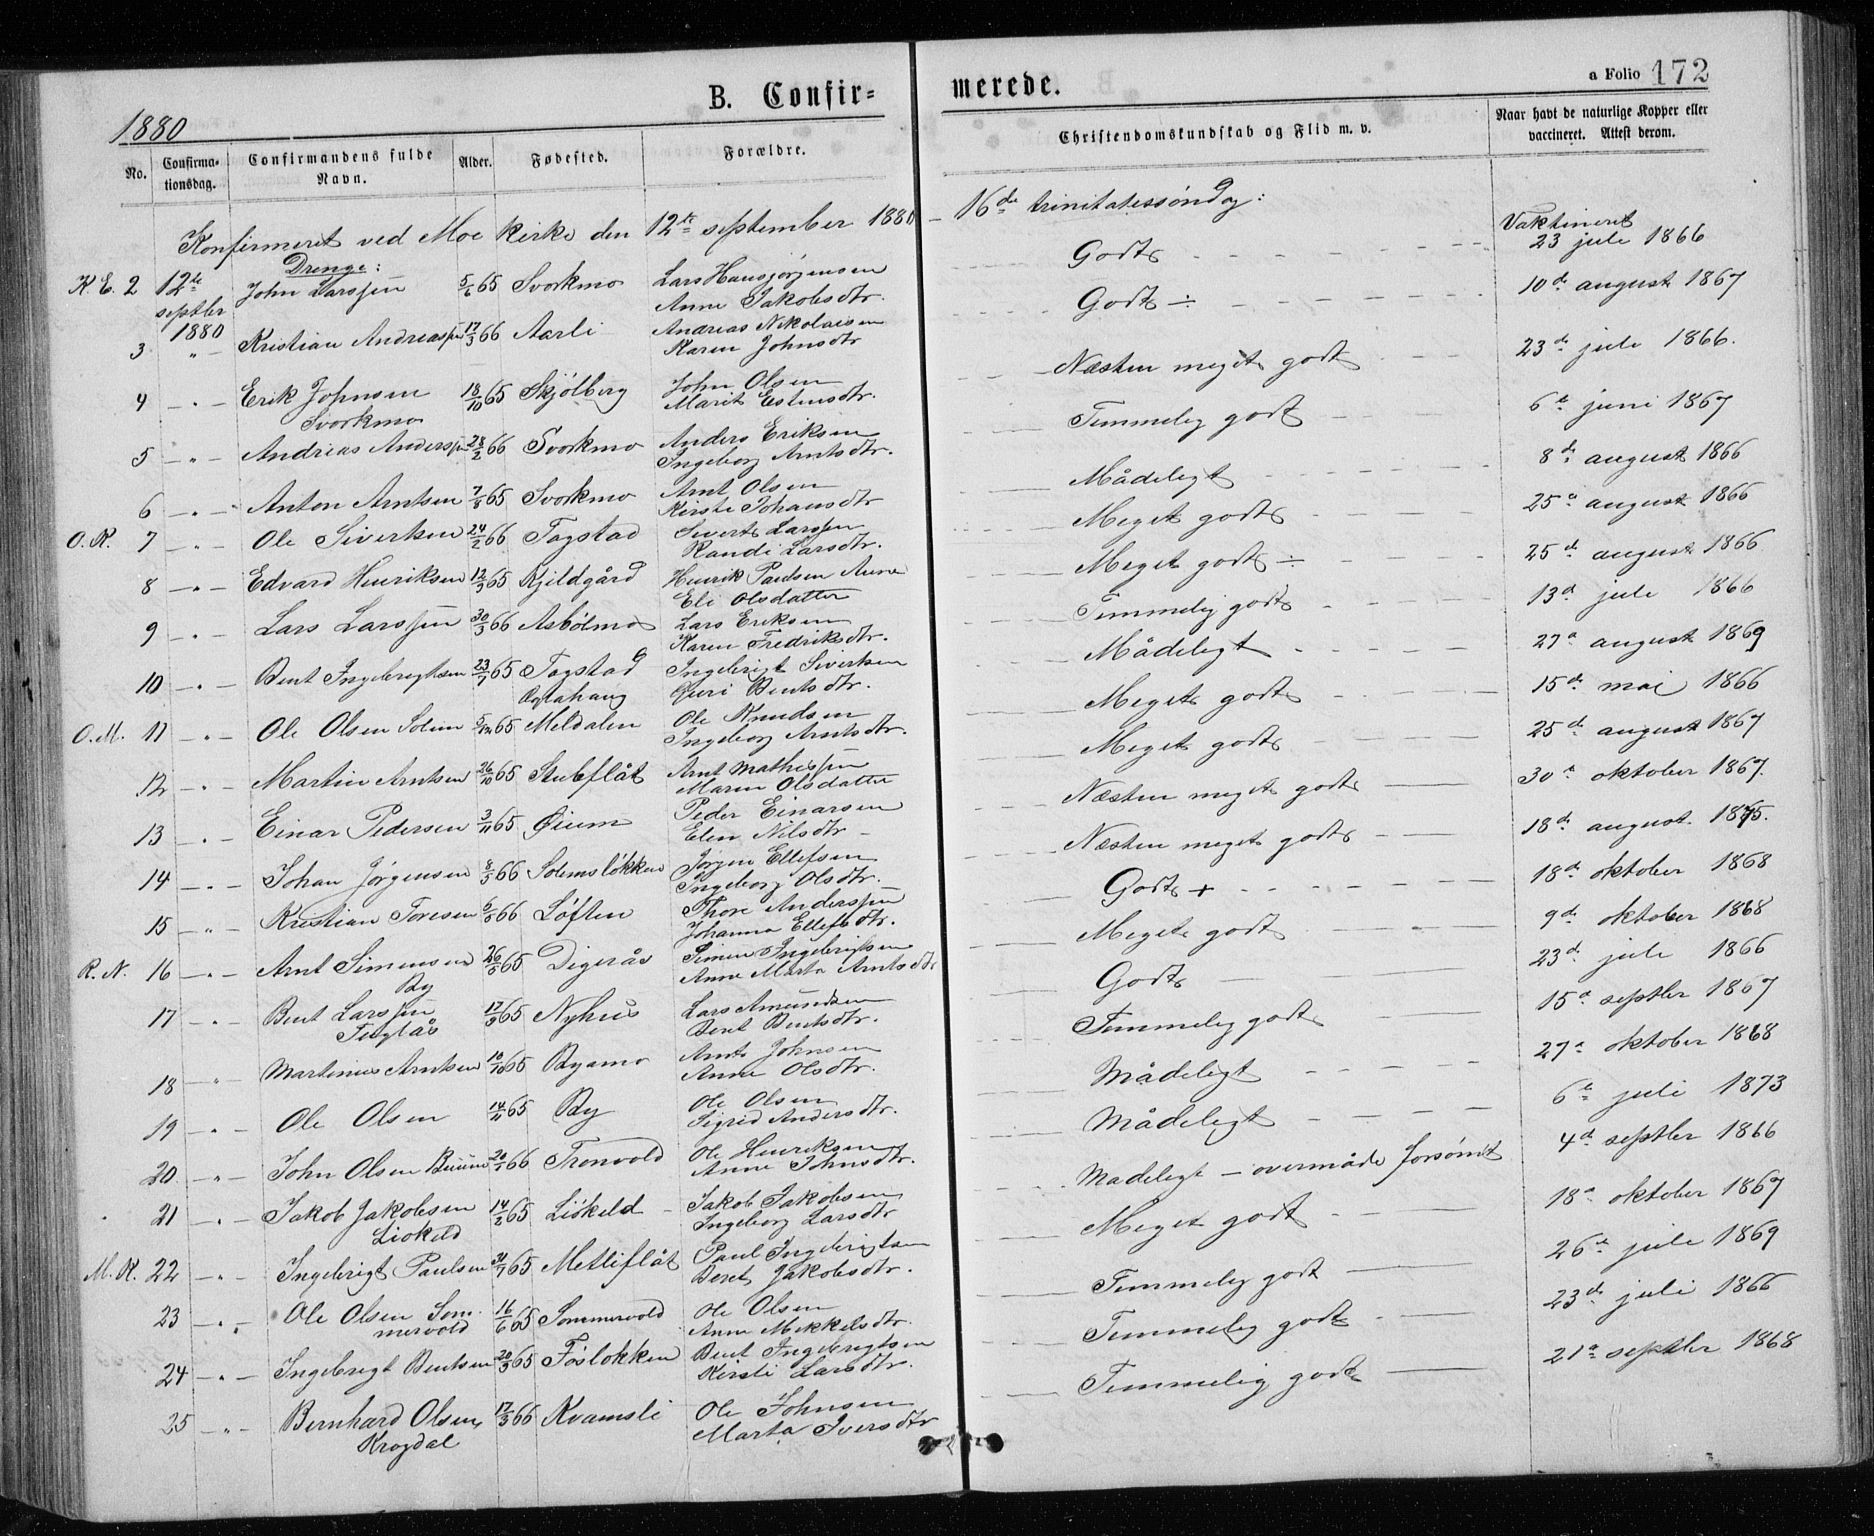 B. Confir=
merede.
a Folio 172
1880
No. Confirma-tionsdag. Confirmandens fulde Navn. Alder. Fødested. Forældre. Christendomskundskab og Flid m. v. Naar havt de naturlige Kopper eller vaccineret. Attest derom.
Konfirmeret ved Moe kirke den 12te september 1880 – 16de trinitatessøndag:
Drenge:
Vaktineret
K. E. 2 12te septbr 1880 John Larssen 5/6 65 Svorkmo Lars Hansjørgensen Anne Jakobsdtr. Godt 23 juli 1866
3 – " – Kristian Andreassen 17/3 66 Aarli Andreas Nikolaisen Karen Johnsdtr Godt ÷ 10de august 1867
4 – " – Erik Johnsen Svorkmo 18/10 65 Skjølberg John Olsen Marit Estensdtr. Næsten meget godt 23de juli 1866.
5 – " – Andreas Anderssen 28/2 66 Svorkmo Anders Eriksen Ingeborg Arntsdtr. Temmelig godt 6te juni 1867
6 – " – Anton Arntsen 65 Svorkmo Arnt Olsen Kirsti Johansdtr Mådeligt 8de august 1866
O. R. 7 – " – Ole Sivertsen 24/2 66 Togstad Sivert Larssen Randi Larsdtr. Meget godt 25de august 1866
8 – " – Edvard Henriksen 12/3 65 Kjeldgård Henrik Paulsen Aune Eli Olsdatter Meget godt ÷ 25de august 1866
9 – " – Lars Larssen 30/3 66 Asbølmo Lars Eriksen Karen Fredriksdtr. Temmelig godt 13de juli 1866
10 – " – Bent Ingebrigtsen 23/7 65 Togstad Ingebrigt Sivertsen Guri Bentsdtr. Mådeligt 27de august 1869
O. M. 11 – " – Ole Olsen Solem 5/12 65 Meldalen Ole Knudsen Ingeborg Arntsdtr. Meget godt 15de mai 1866
12 – " – Martin Arntsen 26/10 65 Stubflåt Arnt Mathissen Maren Olsdatter Meget godt 25de august 1867
13 – " – Einar Pedersen 3/11 65 Øium Peder Einarsen Elen Nilsdtr – Næsten meget godt 30te oktober 1867.
14 – " – Johan Jørgensen 8/5 66 Solemsløkken Jørgen Ellefsen Ingeborg Olsdtr. Næsten meget godt 18de august 1875.
15 – " – Kristian Toresen 66 Løften Thore Anderssen Johanna Ellefsdtr. Godt + 18de oktober 1868
R. N. 16 – " – Arnt Simensen By 26/5 65 Digerås Simen Ingebrigtsen Anne Marta Arntsdtr Meget godt 9de oktober 1868
17 – " – Bent Larssen Teiglås 17/9 65 Nyhus Lars Amundsen Beret Bentsdtr. Godt 23de juli 1866
18 – " – Martinius Arntsen 10/10 65 Byamo Arnt Johnsen Anne Olsdtr. Temmelig godt 15de septbr 1867
19 – " – Ole Olsen 14/11 65 By Ole Olsen Sigrid Andersdtr. Mådeligt 27de oktober 1868
20 – " – John Olsen 66 Tronvold Ole Henriksen Anne Johnsdtr. Mådeligt 6te juli 1873
21 – " – Jakob Jakobsen Liøkeld 14/2 65 Liøkeld Jakob Jakobsen Ingeborg Larsdtr Madeligt – overmåde forsømt 4de septbr 1866
M. R. 22 – " – Ingebrigt Paulsen 65 Metliflåt Paul Ingebrigtsen Beret Jakobsdtr. Meget godt 18de oktober 1867
23 – " – Ole Olsen Sommervold 16/6 65 Sommervold Ole Olsen Anne Mikkelsdtr. Temmelig godt 26de juli 1869
24 – " – Ingebrigt Bentsen 20/9 65 Føsløkken Bent Ingebrigtsen Kirsti Larsdtr. Temmelig godt 23de juli 1866
25 – " – Bernhard Olsen Krogdal 17/3 66 Kvamsli Ole Johnsen Marta Iversdtr Temmelig godt 21de septbr 1868